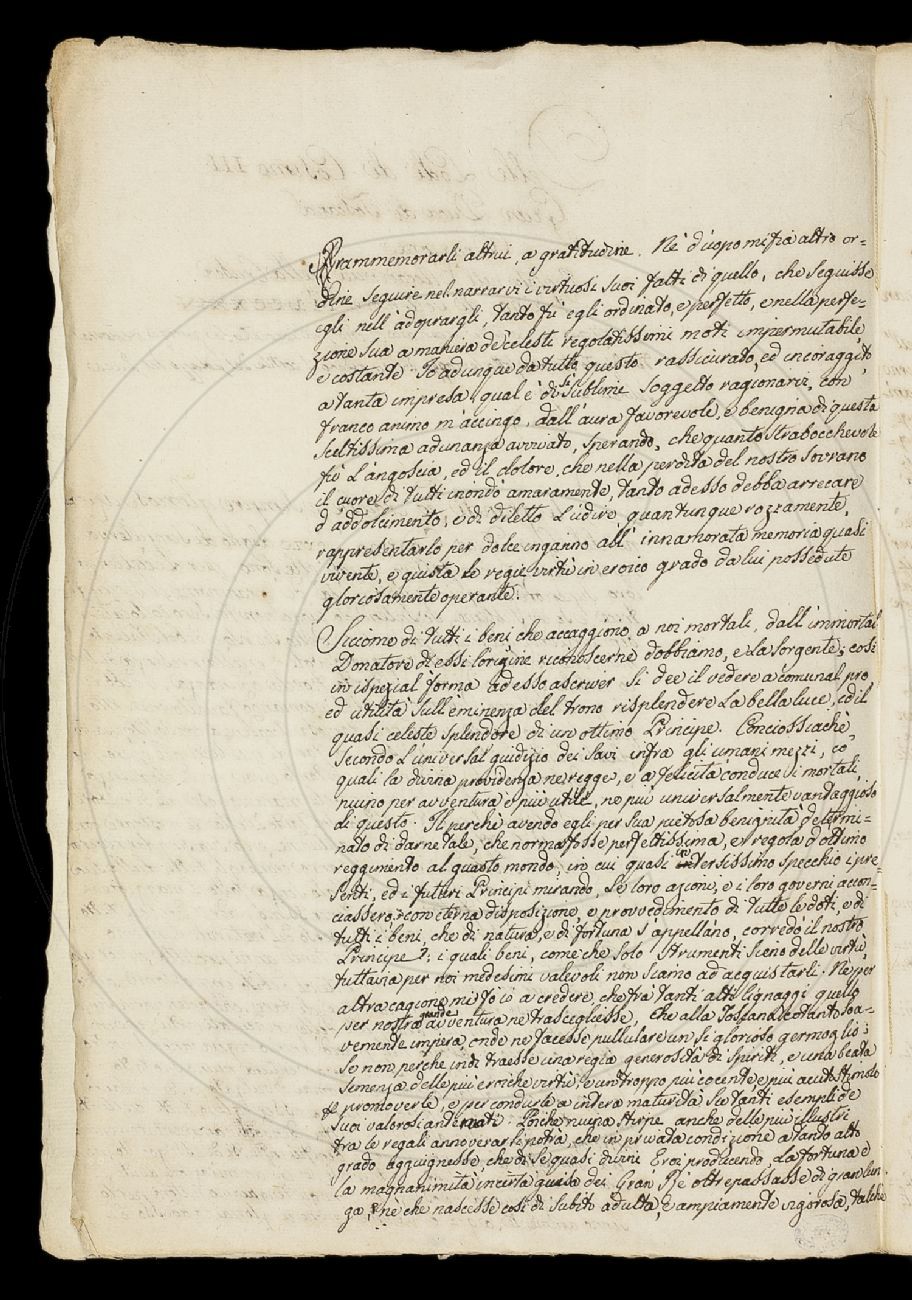 rammemorarli altrui, a gratitudine. Ne' d'uopo mi fia altro or-
dine seguire nel narrarvi i virtuosi suoi fatti di quello, che seguisse
egli nell'adoprargli, tanto fù egli ordinato, e perfetto, e nella perfe-
zione sua a maniera de' celesti regolatissimi moti impermutabile
e costante. Io adunque da tutto questo rassicurato, ed incoraggito
a tanta impresa, qual è di sì sublime soggetto ragionarvi, con
franco animo m'accingo, dall'aura favorevole, e benigna di questa
sceltissima adunanza avvivato, sperando, che quanto strabocchevole
fù l'angoscia, ed il dolore, che nella perdita del nostro Sovrano
il cuore di tutti inondò amaramente, tanto adesso debba arrecare
d'addolcimento, e di diletto l'udire quantunque rozzamente,
rappresentarlo per dolce inganno all'innamorata memoria quasi
vivente, e giusta le regie virtù in eroico grado da lui possedute
gloriosamente operante.
Siccome di tutti i beni che accaggiono a noi mortali, dall'immortal
Donatore di essi l'origine riconoscerne dobbiamo, e la sorgente; così
in ispezial forma adesso ascriver si dee il vedere a comunal pro,
ed utilità sull'eminenza del trono risplendere la bella luce, ed il
quasi celeste splendore di un ottimo Principe. Conciossiachè,
secondo l'universal giudizio dei Savi infra gli umani mezzi, co'
quali la divina providenza ne regge, e a felicità conduce i mortali,
niuno per avventura è più utile, ne più universalmente vantaggioso
di questo. Il perchè avendo egli per sua pietosa benignità determi-
nato di darne tale, che norma fosse perfettissima, e regola d'ottimo
reggimento al guasto mondo, in cui quasi in tersissimo specchio i pre-
senti, ed i futuri Principi mirando, le loro azioni, e i loro governi accon-
ciassero; con eterna disposizione, e provvedimento di tutte le doti, e di
tutti i beni che di natura, e di fortuna s'appellano, corredò il nostro
Principe: i quali beni, come che solo strumenti sieno delle virtù,
tuttavia per noi medesimi valevoli non siamo ad acquistarli. Ne per
altra cagione mi fo io a credere, che frà tanti alti lignaggi quello
per nostra grande avventura ne trascegliesse, che alla Toscana cotanto soa-
vemente impera, onde ne facesse pullulare un sì glorioso germoglio;
se non perche indi traesse una regia generosità di Spiriti, e una beata
semenza delle più eroiche virtù, e un troppo più cocente e più acuto stimolo
a promoverle, e per condurle a intera maturità se tanti esempli de'
suoi valorosi antenati. Poiche niuna stirpe anche delle più illustri
tra le regali annoverar si potrà, che in privata condizione a tanto alto
grado aggiugnesse, che di se quasi divini Eroi producendo la fortuna e
la magnanimità in certa guisa dei Gran Rè oltrepassasse di gran lun-
ga, ne che nascesse così di subito adulta, e ampiamente vigorosa, talche